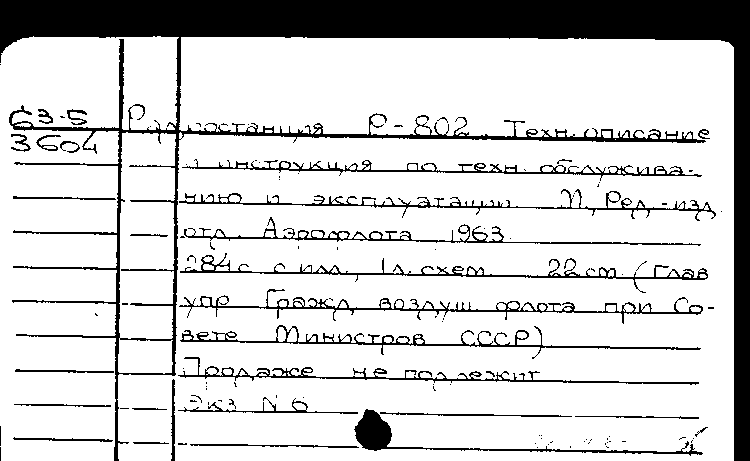 63-5
3604
Радиостанция Р-802. Техн. описание
и инструкция по техн. обслужива-
нию и эксплуатации. М., Ред.-изд.
отд. Аэрофлота 1963.
284с. с илл., 1л. схем. 22 см (Глав
упр Гражд. воздуш. флота при Со-
вете Министров СССР)
Продаже не подлежит
Экз N 6